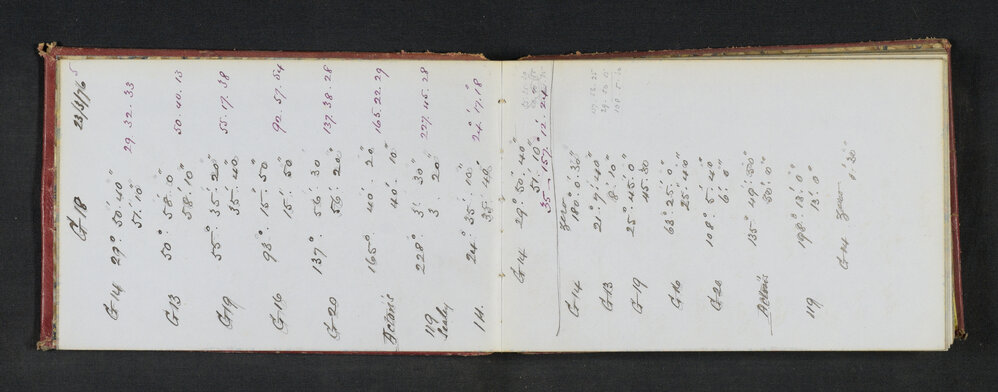 G 18 23/3/76
G14 29° 50' 40" 29 32.33
51' 10"
G13 50° 58' 0" 50.40.13
58' 10"
G19 55° 35' 20" 55.17.38
35' 40"
G16 93° 15' 50" 92.57.54
15' 50"
G20 137° 56' 30" 137.38.28
56' 20"
165° 40' 20" 165.22.29
40' 10"
119 228° 3' 30" 227.45.28
3' 20"
24° 35' 10" 24° 17' 18"
35' 40"
G14 29° 50' 40"
51' 10"
zero
G14 180° 0' 30"
G13 21° 7' 40"
8' 10"
G19 25° 45' 0"
45' 30
G16 63° 25' 0"
25' 40"
G20 108° 5' 40"
6' 0"
135° 49' 50"
50' 0"
119 198° 13' 0"
13' 0"
G14 zero 0' 30"